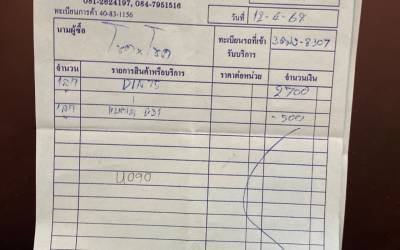 081-2624197, 084-7951516
ทะเบียนการค้า 40-83-1156
วันที่ 12-4-68
นามผู้ซื้อ
ทะเบียนรถที่เข้ารับบริการ
จำนวน รายการสินค้าหรือบริการ ราคาต่อหน่วย จำนวนเงิน
1ลูก DIN 75 2700
1ลูก -500
U090